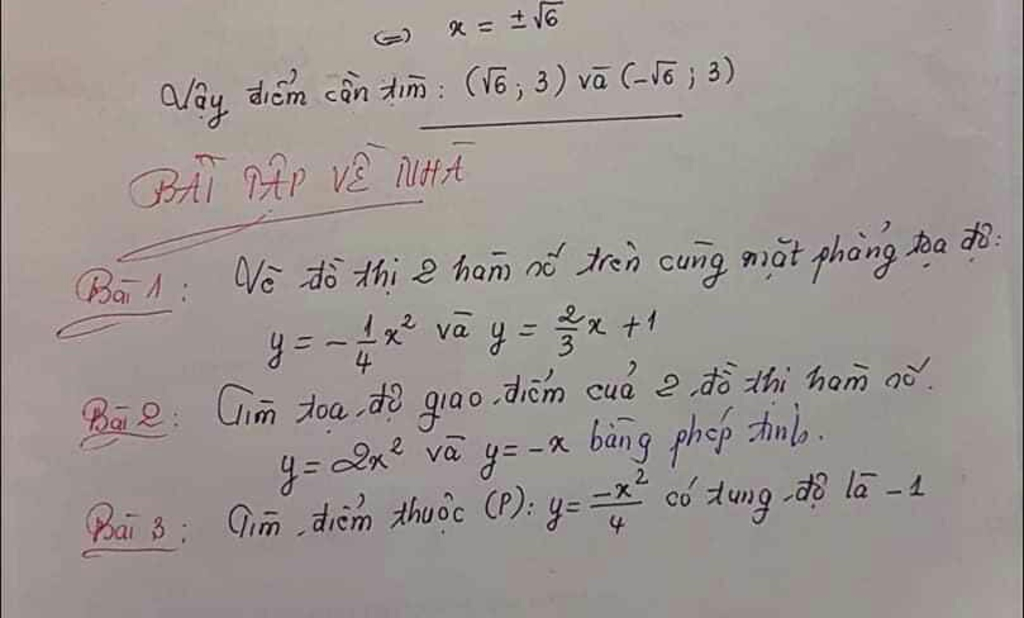 <=> x = ±√6
Vậy điểm cần tìm: (√6; 3) và (-√6; 3)
BÀI TẬP VỀ NHÀ
Bài 1: Vẽ đồ thị 2 hàm số trên cùng mặt phẳng tọa độ:
y = -1/4 x² và y = 2/3 x + 1
Bài 2: Tìm tọa độ giao điểm của 2 đồ thị hàm số.
y = 2x² và y = -x bằng phép tính.
Bài 3: Tìm điểm thuộc (P): y = -x²/4 có tung độ là -1